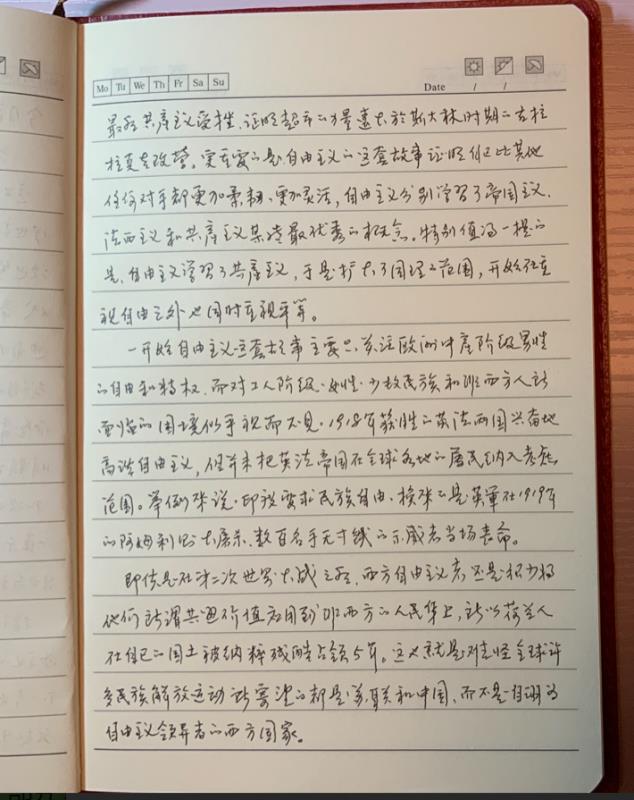 Mo Tu We Th Fr Sa Su
Date / /
最後共產主义受挫,证明超市的力量遠大於斯大林时期的古拉
格。更重要的是,自由主义的这套故事证明自己比其他
任何对手都更加柔韧、更加灵活,自由主义分别学習了帝国主义、
法西主义和共產主义某些最优秀的概念。特别值得一提的
是,自由主义学習了共產主义,于是扩大了同理心范围,开始在重
視自由之外也同时重視平等。
一开始自由主义这套故事主要只关注欧洲中產阶级男性
的自由和特权,而对工人阶级、女性、少数民族和非西方人所
面临的困境似乎視而不見。1918年获胜的英法两国兴奋地
高談自由主义,但并未把英法帝国在全球各地的居民納入考慮
范围。举例來说,印度要求民族自由,換來的是英軍在1919年
的阿姆利则大屠杀,数百名手无寸鉄的示威者当场丧命。
即使是在第二次世界大战之後,西方自由主义者还是很少将
他们所謂共通价值应用到非西方的人民身上,所以荷兰人
在自己的国土被纳粹残酷占领5年。这也就是难怪全球许
多民族解放运动所寄望的都是苏联和中国,而不是自詡为
自由主义领导者的西方国家。